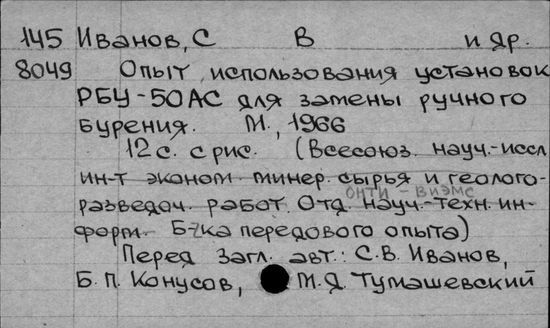 145 Иванов, С В и др.
8049 Опыт использования установок
РБУ-50АС для замены ручного
бурения. М., 1966
12 с. с рис. (Всесоюз. науч.-иссл.
ин-т эконом. минер. сырья и геолого-
ОНТИ - ВИЭМС
разведоч. работ. Отд. науч.-техн. ин-
форм. Б-ка передового опыта)
Перед загл. авт.: С.В. Иванов,
Б.П. Конусов, М.Я. Тумашевский